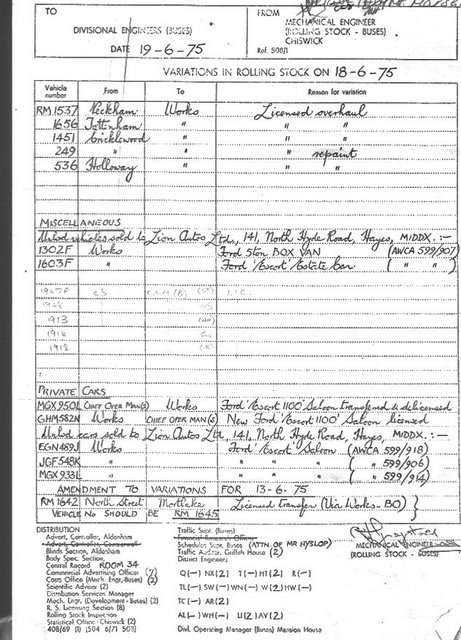 TO
DIVISIONAL ENGINEERS (BUSES)
DATE 19-6-75
FROM
MECHANICAL ENGINEER
(ROLLING STOCK - BUSES)
CHISWICK
Ref. 508/1
VARIATIONS IN ROLLING STOCK ON 18-6-75
Vehicle number From To Reason for variation
RM 1537 Peckham Works Licensed overhaul
1656 Tottenham " "
1451 Cricklewood " "
249 " " " repaint
536 Holloway " " "
MISCELLANEOUS
Unlicd vehicles sold to Lion Autos Ltd., 141, North Hyde Road, Hayes, MIDDX. :—
1302F Works Ford 5ton BOX VAN (AWCA 599/907)
1603F " Ford 'Escort' Estate Car ( " " )
1913
1916
1918
PRIVATE CARS
MGX 950L CHIEF OPER MAN(S) Works Ford 'Escort 1100' Saloon transferred & delicensed
GHM 582N Works CHIEF OPER MAN(S) New Ford 'Escort 1100' Saloon licensed
Unlicd cars sold to Lion Autos Ltd, 141, North Hyde Road, Hayes, MIDDX. :—
EGN 489J Works Ford 'Escort' Saloon (AWCA 599/918)
JGF 548K " " " " ( " 599/906)
MGX 933L " " " " ( " 599/914)
AMENDMENT TO VARIATIONS FOR 13-6-75
RM 1642 North Street Mortlake Licensed transfer (Via Works-BO)
VEHICLE No SHOULD BE RM 1645
MECHANICAL ENGINEER
(ROLLING STOCK - BUSES)
DISTRIBUTION
Advert. Controller, Aldenham
Blinds Section, Aldenham
Body Spec. Section,
Central Record ROOM 34
Commercial Advertising Officer (7)
Cars Office (Mech. Engr. Buses) (2)
Scientific Adviser (2)
Distribution Services Manager
Mech. Engr. (Development-Buses) (2)
R. S. Licensing Section (8)
Rolling Stock Inspection
Statistical Office, Chiswick (2)
408/69 (1) (504 6/71 503)
Traffic Supt. (Buses)
Financial Research Officer
Schedules Supt. Buses (ATTN. OF MR HYSLOP)
Traffic Auditor, Griffith House (2)
District Engineers
Q(—) NX(2) T(—) HT(2) R(—)
TL(—) SW(—) WN(—) W(2) HW(—)
TC(—) AR(2)
AL(—) WH(—) U(2) AV(2)
Divl. Operating Manager (Buses) Mansion House